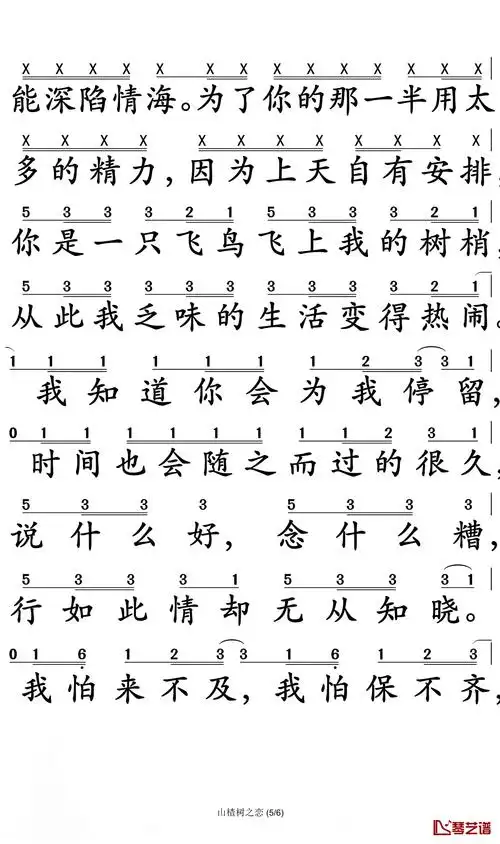 X X X X X X X X X X X X X X
能深陷情海。为了你的那一半用太
X X X X X X X X X X X X X
多的精力,因为上天自有安排,
5 3 3 3 2 1 5 3 3 3 3 2 1
你是一只飞鸟飞上我的树梢,
5 3 3 3 3 3 3 3 3 3 3 2 1
从此我乏味的生活变得热闹。
1 1 1 1 1 1 1 2 3 3 1
我知道你会为我停留,
0 1 1 1 1 1 1 1 1 2 3 1
时间也会随之而过的很久,
5 3 3 3 5 3 3 3
说什么好,念什么糟,
5 3 3 3 1 5 3 3 3 1
行如此情却无从知晓。
0 1 6 1 2 3 3 1 6 1 2 3
我怕来不及,我怕保不齐,
山楂树之恋 (5/6)
琴艺谱